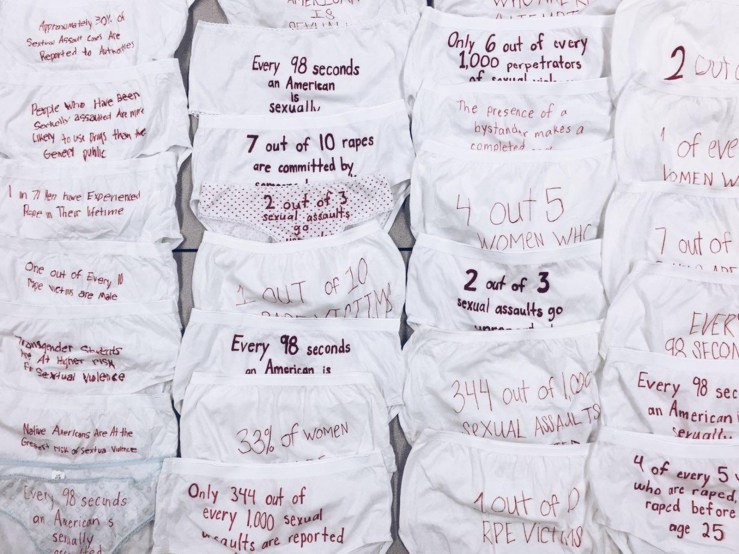 Approximately 30% of
Sexual Assault Cases Are
Reported to Authorities
People Who Have Been
Sexually assaulted Are more
Likely to use Drugs than the
General public
1 in 71 Men have Experienced
Rape in Their lifetime
One out of Every 10
rape victims are Male
Transgender Students
Are At Higher risk
For Sextual Violence
Native Americans Are At the
Greatest risk of Sextual Violence
Every 98 seconds
an American is
sexually
assaulted
IS
Every 98 seconds
an American
is
sexually
7 out of 10 rapes
are committed by
2 out of 3
sexual assaults
go
1 OUT OF 10
RAPE VICTIMS
Every 98 seconds
an American is
33% of WOMEN
Only 344 out of
every 1,000 sexual
assaults are reported
Only 6 out of every
1,000 perpetrators
of sexual
The presence of a
bystander makes a
completed
4 out 5
WOMEN WHO
2 out of 3
sexual assaults go
344 out of 1,000
SEXUAL ASSAULTS
1 out of
RPE VICTIMS
2 out
1 of eve
WOMEN W
7 out of
EVER
98 SECON
Every 98 sec
an American i
sexually
4 of every 5
who are raped,
raped before
age 25